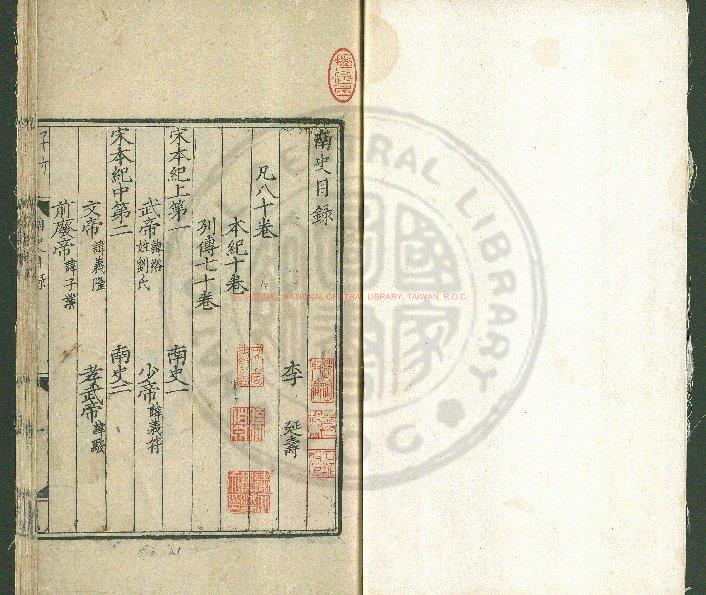 南史目錄
李延壽
凡八十卷
本紀十卷
列傳七十卷
宋本紀上第一 南史一
武帝諱裕姓劉氏 少帝諱義符
宋本紀中第二 南史二
文帝諱義隆 孝武帝諱駿
前廢帝諱子業
NATIONAL CENTRAL LIBRARY, TAIWAN, R.O.C
CENTRAL LIBRARY